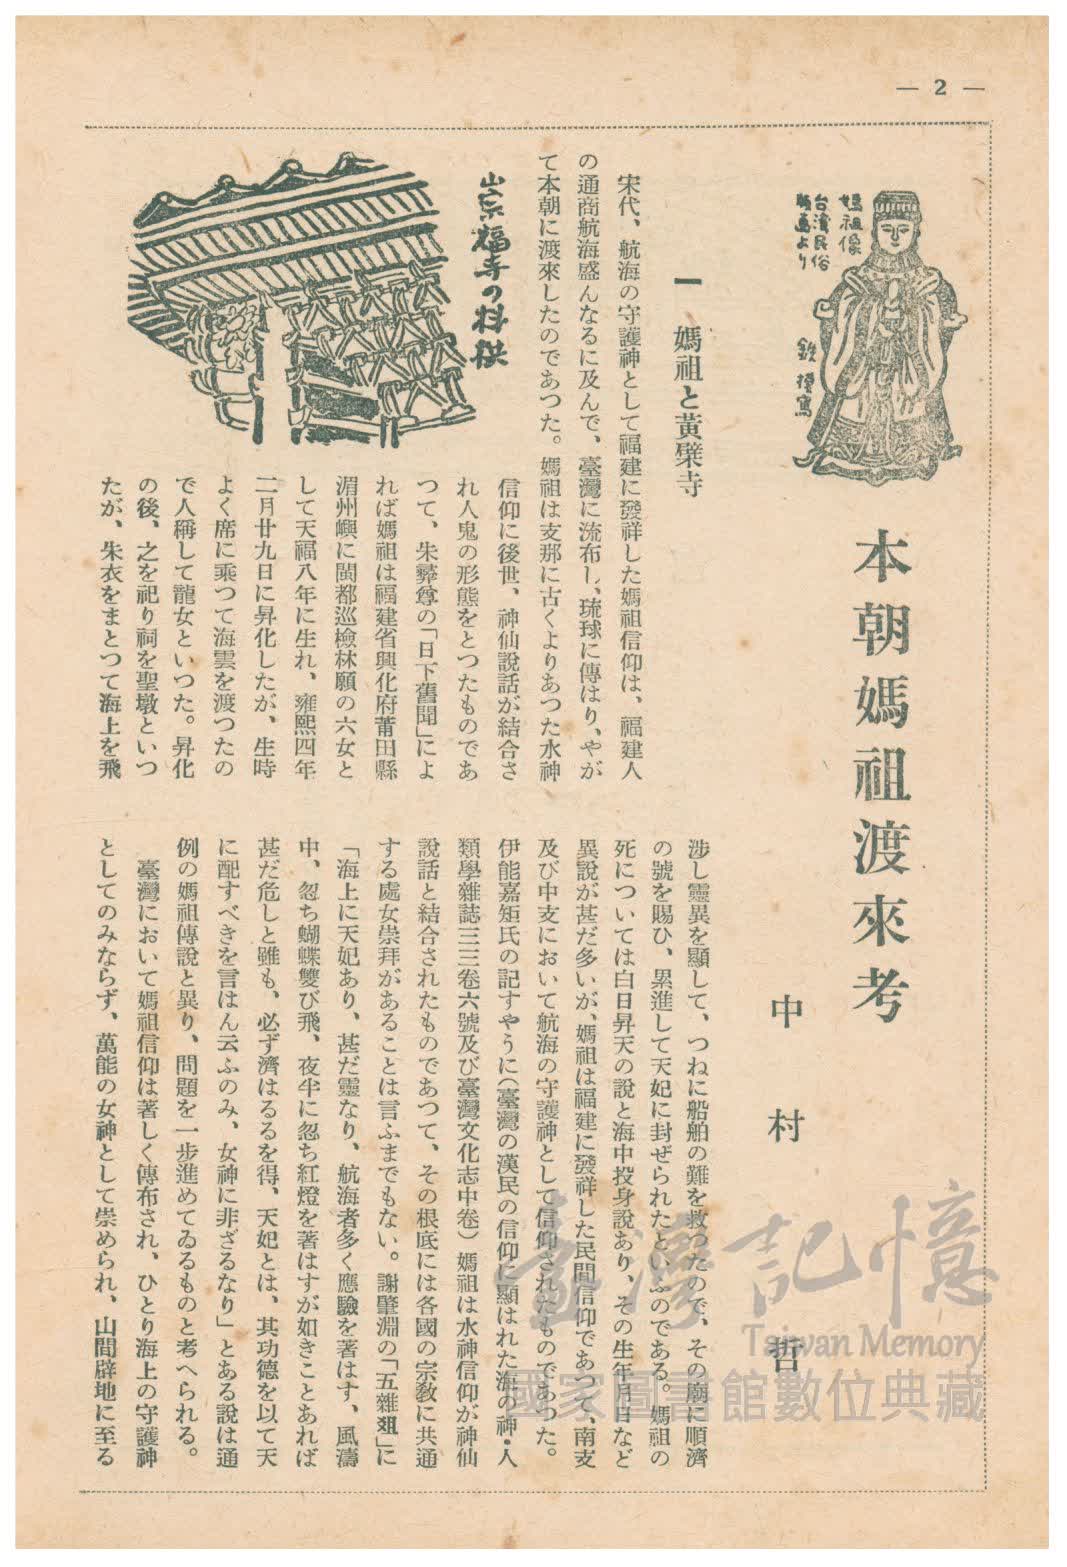 — 2 —
媽祖像
台湾民俗
版画より
鉄 寫
本朝媽祖渡來考
中村哲
一　媽祖と黃檗寺
宋代、航海の守護神として福建に發祥した媽祖信仰は、福建人
の通商航海盛んなるに及んで、臺灣に流布し、琉球に傳はり、やが
て本朝に渡來したのであつた。媽祖は支那に古くよりあつた水神
信仰に後世、神仙說話が結合さ
れ人鬼の形態をとつたものであ
つて、朱彝尊の「日下舊聞」によ
れば媽祖は福建省興化府莆田縣
湄州嶼に閩都巡檢林願の六女と
して天福八年に生れ、雍熙四年
二月廿九日に昇化したが、生時
よく席に乘つて海雲を渡つたの
で人稱して龍女といつた。昇化
の後、之を祀り祠を聖墩といつ
たが、朱衣をまとつて海上を飛
崇福寺の斗栱
涉し靈異を顯して、つねに船舶の難を救つたので、その廟に順濟
の號を賜ひ、累進して天妃に封ぜられたといふのである。媽祖の
死については白日昇天の說と海中投身說あり、その生年月日など
異說が甚だ多いが、媽祖は福建に發祥した民間信仰であつて、南支
及び中支において航海の守護神として信仰されたものであつた。
伊能嘉矩氏の記すやうに（臺灣の漢民の信仰に顯はれた海の神・人
類學雜誌三三卷六號及び臺灣文化志中卷）媽祖は水神信仰が神仙
說話と結合されたものであつて、その根底には各國の宗敎に共通
する處女崇拜があることは言ふまでもない。謝肇淵の「五雜爼」に
「海上に天妃あり、甚だ靈なり、航海者多く應驗を著はす、風濤
中、忽ち蝴蝶雙び飛、夜半に忽ち紅燈を著はすが如きことあれば
甚だ危しと雖も、必ず濟はるるを得、天妃とは、其功德を以て天
に配すべきを言はん云ふのみ、女神に非ざるなり」とある說は通
例の媽祖傳說と異り、問題を一步進めてゐるものと考へられる。
臺灣において媽祖信仰は著しく傳布され、ひとり海上の守護神
としてのみならず、萬能の女神として崇められ、山間辟地に至る
臺灣記憶
Taiwan Memory
國家圖書館數位典藏